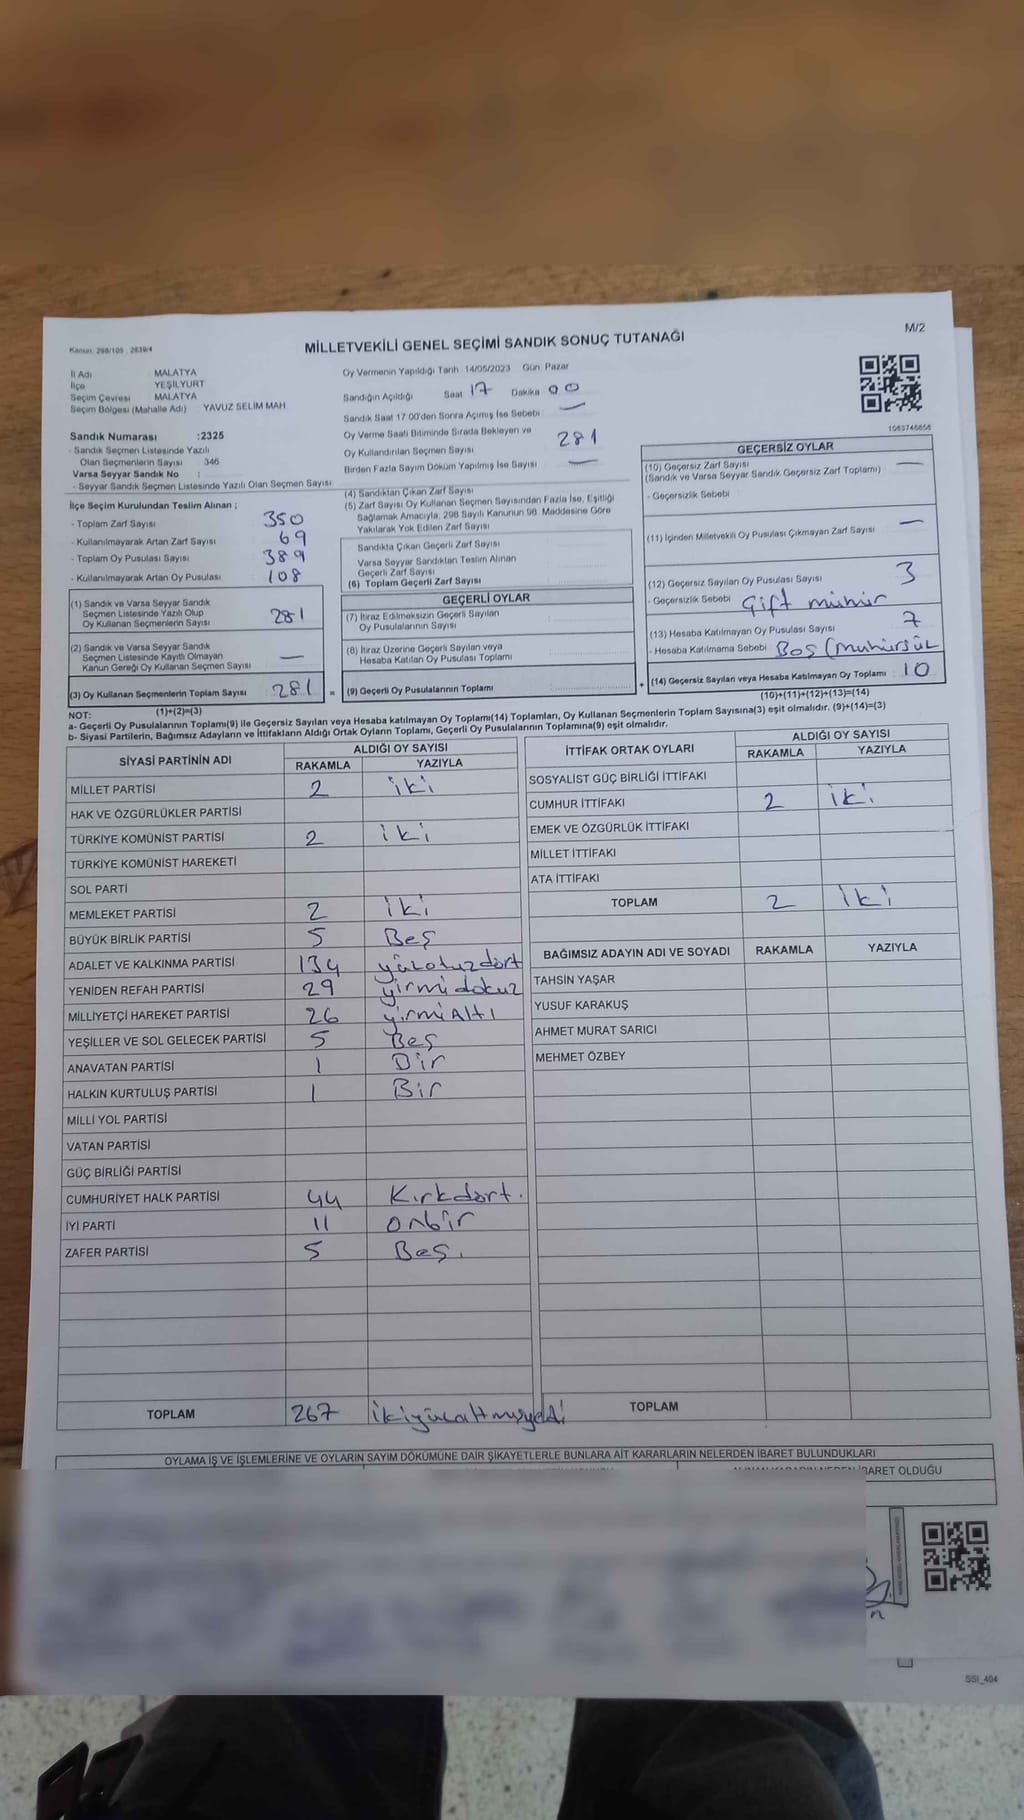 M/2
Kanun: 298/105 , 2839/4
MİLLETVEKİLİ GENEL SEÇİMİ SANDIK SONUÇ TUTANAĞI
İl Adı MALATYA
İlçe YEŞİLYURT
Seçim Çevresi MALATYA
Seçim Bölgesi (Mahalle Adı) YAVUZ SELİM MAH
Sandık Numarası :2325
- Sandık Seçmen Listesinde Yazılı
Olan Seçmenlerin Sayısı 346
Varsa Seyyar Sandık No :
- Seyyar Sandık Seçmen Listesinde Yazılı Olan Seçmen Sayısı
Oy Vermenin Yapıldığı Tarih :14/05/2023 Gün: Pazar
Sandığın Açıldığı Saat 17 Dakika 00
Sandık Saat 17:00'den Sonra Açımış İse Sebebi —
Oy Verme Saati Bitiminde Sırada Bekleyen ve
Oy Kullandırılan Seçmen Sayısı 281
Birden Fazla Sayım Döküm Yapılmış İse Sayısı —
1083746656
İlçe Seçim Kurulundan Teslim Alınan ;
- Toplam Zarf Sayısı 350
- Kullanılmayarak Artan Zarf Sayısı 69
- Toplam Oy Pusulası Sayısı 389
- Kullanılmayarak Artan Oy Pusulası 108
(1) Sandık ve Varsa Seyyar Sandık
Seçmen Listesinde Yazılı Olup
Oy Kullanan Seçmenlerin Sayısı 281
(2) Sandık ve Varsa Seyyar Sandık
Seçmen Listesinde Kayıtlı Olmayan
Kanun Gereği Oy Kullanan Seçmen Sayısı —
(3) Oy Kullanan Seçmenlerin Toplam Sayısı : 281 =
(1)+(2)=(3)
(4) Sandıktan Çıkan Zarf Sayısı
(5) Zarf Sayısı Oy Kullanan Seçmen Sayısından Fazla İse, Eşitliği
Sağlamak Amacıyla, 298 Sayılı Kanunun 98. Maddesine Göre
Yakılarak Yok Edilen Zarf Sayısı
Sandıkta Çıkan Geçerli Zarf Sayısı
Varsa Seyyar Sandıktan Teslim Alınan
Geçerli Zarf Sayısı
(6) Toplam Geçerli Zarf Sayısı
GEÇERLİ OYLAR
(7) İtiraz Edilmeksizin Geçerli Sayılan
Oy Pusulalarının Sayısı
(8) İtiraz Üzerine Geçerli Sayılan veya
Hesaba Katılan Oy Pusulası Toplamı
(9) Geçerli Oy Pusulalarının Toplamı +
GEÇERSİZ OYLAR
(10) Geçersiz Zarf Sayısı —
(Sandık ve Varsa Seyyar Sandık Geçersiz Zarf Toplamı)
- Geçersizlik Sebebi
(11) İçinden Milletvekili Oy Pusulası Çıkmayan Zarf Sayısı —
(12) Geçersiz Sayılan Oy Pusulası Sayısı 3
- Geçersizlik Sebebi Çift mühür
(13) Hesaba Katılmayan Oy Pusulası Sayısı 7
- Hesaba Katılmama Sebebi Boş (mühürsüz
(14) Geçersiz Sayılan veya Hesaba Katılmayan Oy Toplamı : 10
(10)+(11)+(12)+(13)=(14)
NOT:
a- Geçerli Oy Pusulalarının Toplamı(9) ile Geçersiz Sayılan veya Hesaba katılmayan Oy Toplamı(14) Toplamları, Oy Kullanan Seçmenlerin Toplam Sayısına(3) eşit olmalıdır. (9)+(14)=(3)
b- Siyasi Partilerin, Bağımsız Adayların ve İttifakların Aldığı Ortak Oyların Toplamı, Geçerli Oy Pusulalarının Toplamına(9) eşit olmalıdır.
SİYASİ PARTİNİN ADI ALDIĞI OY SAYISI
RAKAMLA YAZIYLA
MİLLET PARTİSİ 2 iki
HAK VE ÖZGÜRLÜKLER PARTİSİ
TÜRKİYE KOMÜNİST PARTİSİ 2 iki
TÜRKİYE KOMÜNİST HAREKETİ
SOL PARTİ
MEMLEKET PARTİSİ 2 iki
BÜYÜK BİRLİK PARTİSİ 5 Beş
ADALET VE KALKINMA PARTİSİ 134 yüzotuzdört
YENİDEN REFAH PARTİSİ 29 yirmidokuz
MİLLİYETÇİ HAREKET PARTİSİ 26 yirmiAltı
YEŞİLLER VE SOL GELECEK PARTİSİ 5 Beş
ANAVATAN PARTİSİ 1 Bir
HALKIN KURTULUŞ PARTİSİ 1 Bir
MİLLİ YOL PARTİSİ
VATAN PARTİSİ
GÜÇ BİRLİĞİ PARTİSİ
CUMHURİYET HALK PARTİSİ 44 Kırkdört.
İYİ PARTİ 11 onbir
ZAFER PARTİSİ 5 Beş.
TOPLAM 267 ikiyüzaltmışyedi
İTTİFAK ORTAK OYLARI ALDIĞI OY SAYISI
RAKAMLA YAZIYLA
SOSYALİST GÜÇ BİRLİĞİ İTTİFAKI
CUMHUR İTTİFAKI 2 iki
EMEK VE ÖZGÜRLÜK İTTİFAKI
MİLLET İTTİFAKI
ATA İTTİFAKI
TOPLAM 2 iki
BAĞIMSIZ ADAYIN ADI VE SOYADI RAKAMLA YAZIYLA
TAHSİN YAŞAR
YUSUF KARAKUŞ
AHMET MURAT SARICI
MEHMET ÖZBEY
TOPLAM
OYLAMA İŞ VE İŞLEMLERİNE VE OYLARIN SAYIM DÖKÜMÜNE DAİR ŞİKAYETLERLE BUNLARA AİT KARARLARIN NELERDEN İBARET BULUNDUKLARI
İBARET OLDUĞU
SSI_404